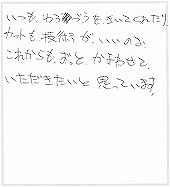 いつも、わろづうを、きいてくれたり、
カットも技術が、いいので
これからも、ずっと、かよわせて、
いただきたいと思っています。